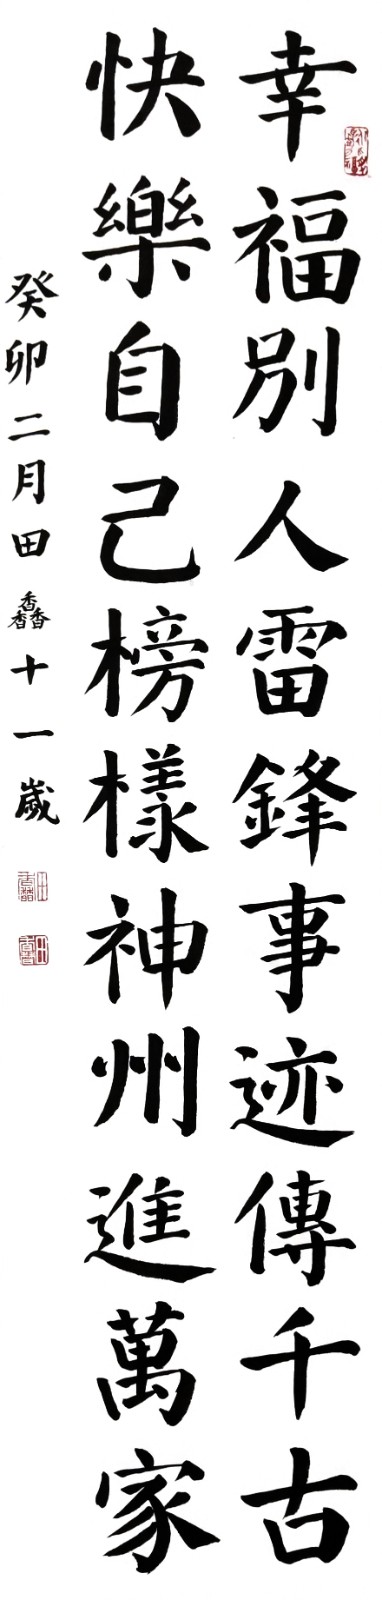 幸福別人雷鋒事迹傳千古
快樂自己榜樣神州進萬家
癸卯二月田馫十一歲